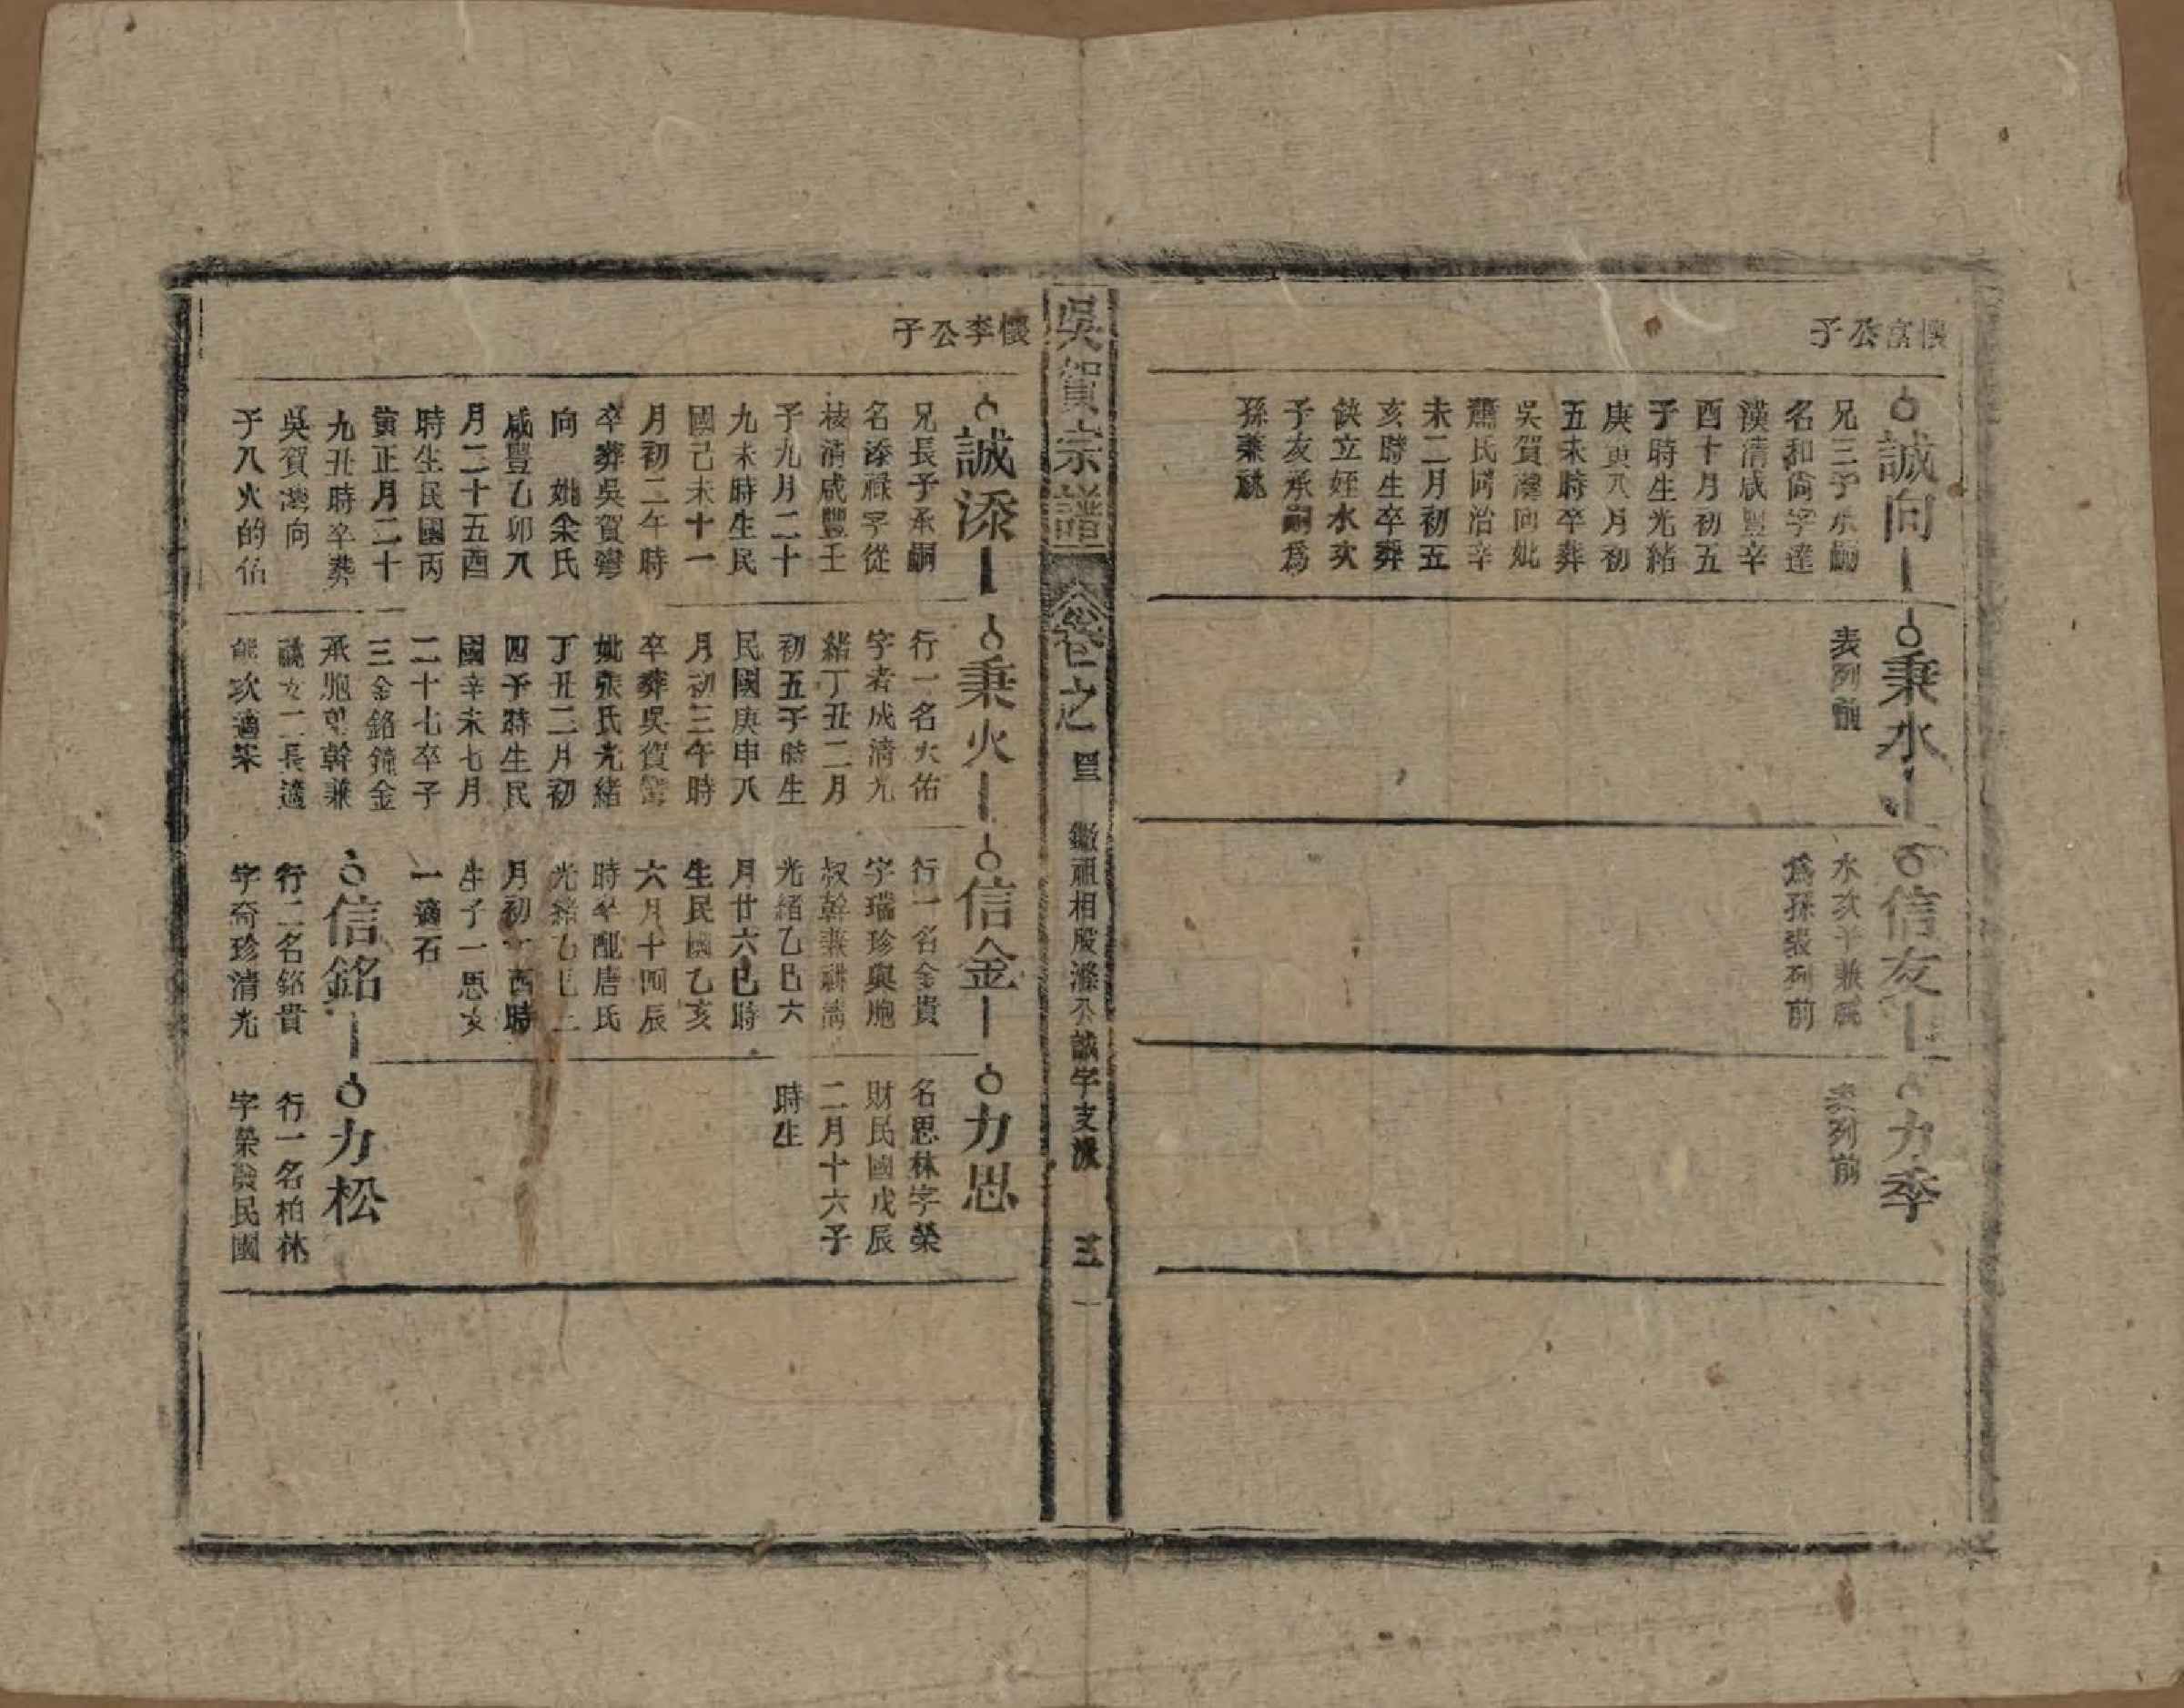 懷富公子
誠向
兄三子承嗣
名和尙字達
漢清咸豐辛
酉十月初五
子時生光緒
庚寅八月初
五未時卒葬
吳賀灣向妣
蕭氏同治辛
未二月初五
亥時生卒葬
缺立姪水次
子友承嗣爲
孫兼祧
秉水
表列前
信友
水次子兼祧
爲孫表列前
力季
表列前
吳賀宗譜
卷之四
徽祖相殷滌公誠字支派
三一
懷李公子
誠添
兄長子承嗣
名添祿字從
稜清咸豐壬
子九月二十
九未時生民
國己未十一
月初二午時
卒葬吳賀灣
向 妣余氏
咸豐乙卯八
月二十五酉
時生民國丙
寅正月二十
九丑時卒葬
吳賀灣向
子八火的佑
秉火
行一名火佑
字者成清光
緒丁丑二月
初五子時生
民國庚申八
月初三午時
卒葬吳賀灣
妣張氏光緒
丁丑二月初
四子時生民
國辛未七月
二十七卒子
三金銘鐘金
承胞幹兼
祧女二長適
熊次適宋
信金
行一名金貴
字瑞珍與胞
叔幹兼祧清
光緒乙巳六
月廿六巳時
生民國乙亥
六月十四辰
時卒配唐氏
光緒乙巳二
月初十酉時
生子一思女
一適石
信銘
行二名銘貴
字奇珍清光
力思
名思林字榮
財民國戊辰
二月十六子
時生
力松
行一名柏林
字榮發民國